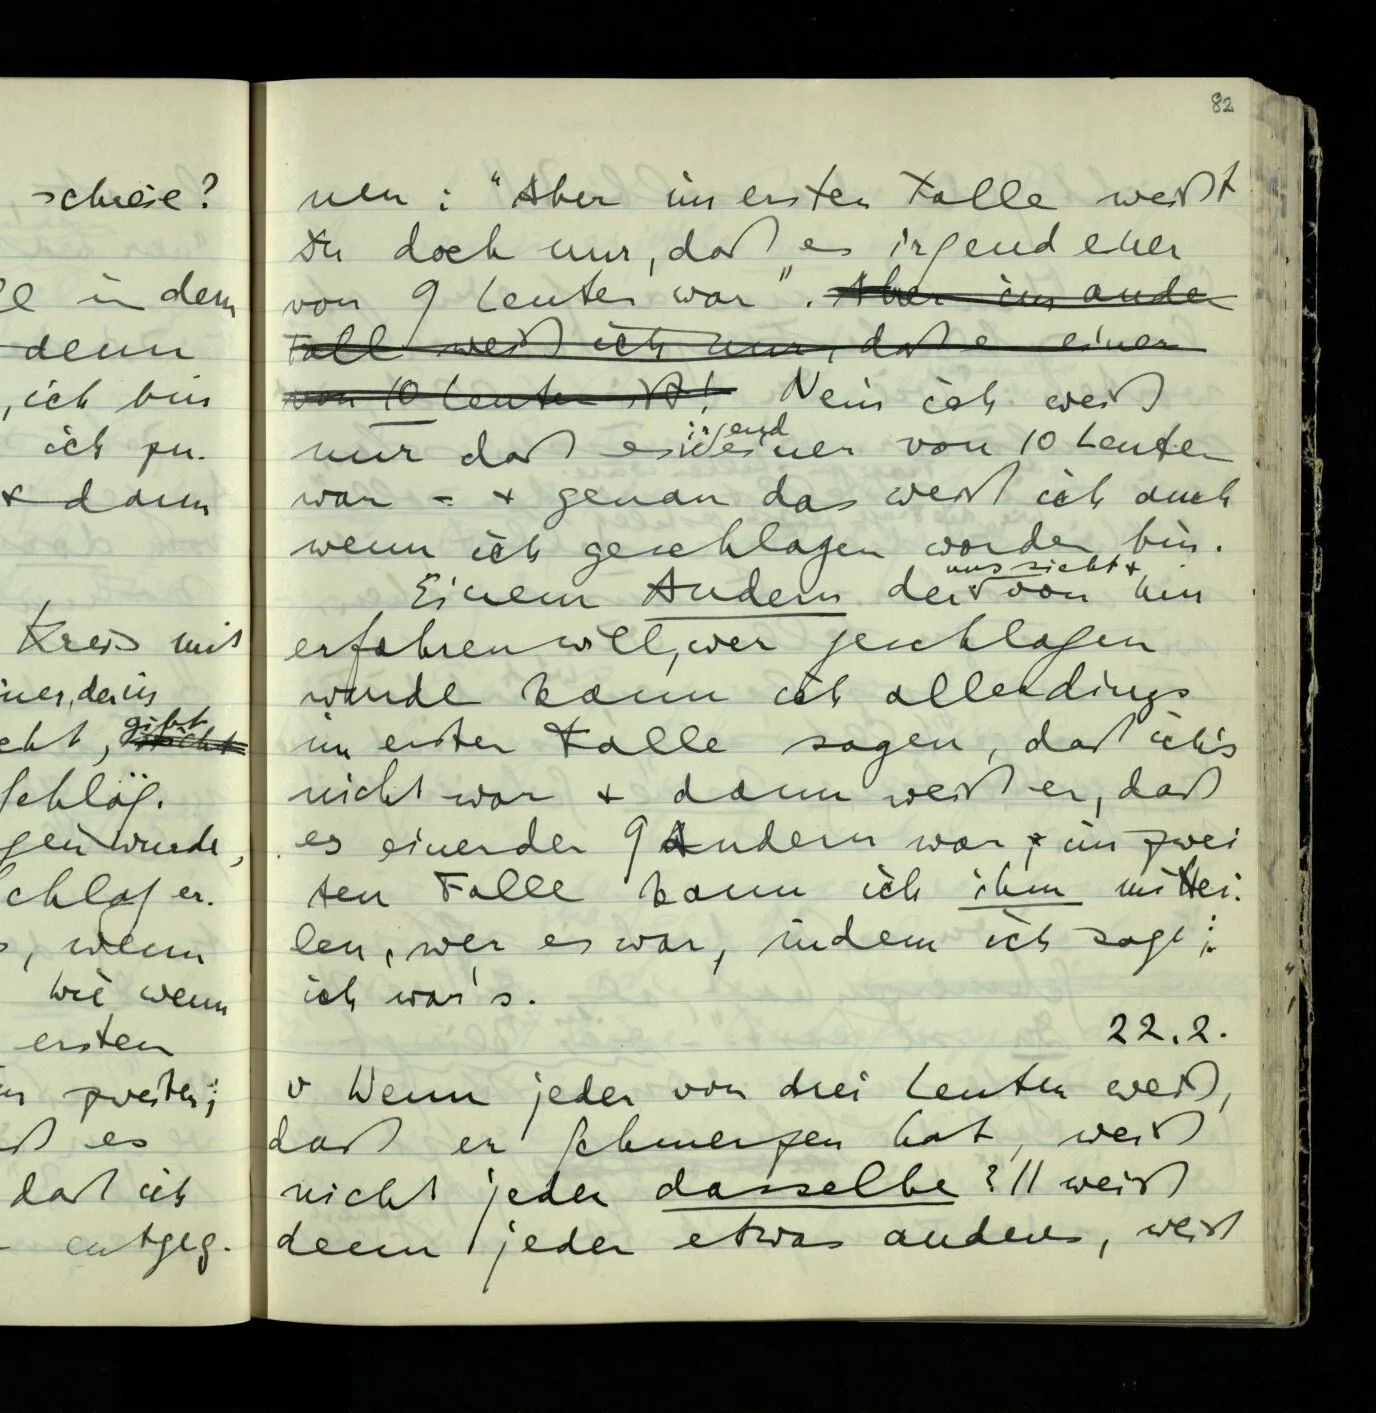 schreie?
in dem
denn
, ich bin
ich zu-
& dann
Kreis mit
iner, der's
cht, gibt
schläg.
gen wurde,
schlag er.
, wenn
Wie wenn
ersten
zweiten;
ß es
daß ich
entgeg-
82
nen : "Aber im ersten Falle weißt
Du doch nur, daß es irgend einer
von 9 Leuten war". Aber im anden
Fall weiß ich nur, daß e einer
von 10 Leuten ist! Nein ich weiß
nur daß es irgend einer von 10 Leuten
war – & genau das weiß ich auch
wenn ich geschlagen worden bin.
Einem Andern der uns sieht & von mir
erfahren will, wer geschlagen
wurde kann ich allerdings
im ersten Falle sagen, daß ich's
nicht war & dann weiß er, daß
es einer der 9 Andern war; im zwei
ten Falle kann ich ihm mittei-
len, wer es war, indem ich sage:
ich war's.
22.2.
v Wenn jeder von drei Leuten weiß,
daß er Schmerzen hat, weiß
nicht jeder dasselbe?\\ weiß
denn jeder etwas anderes, weiß